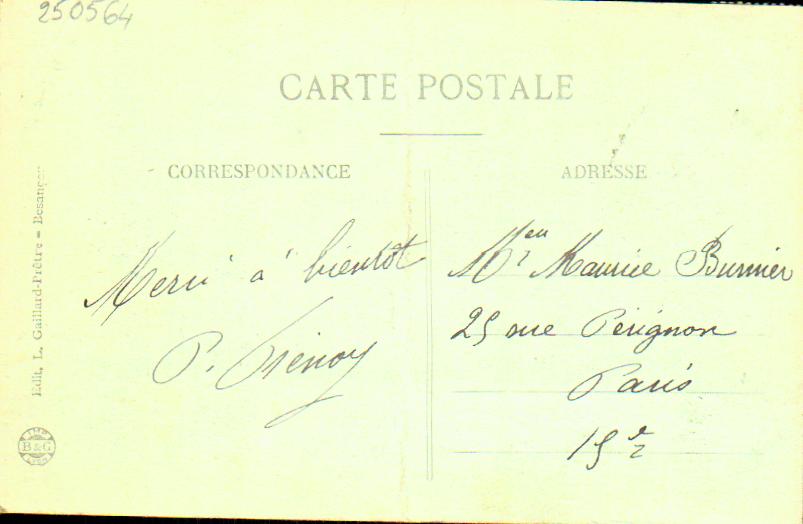 250564
CARTE POSTALE
CORRESPONDANCE
ADRESSE
Edit. L. Gaillard-Prêtre = Besançon
Merci à bientôt
P.
Mr Maurice Burnier
25 rue Pérignon
Paris
15e
IMP
B&G
LYON